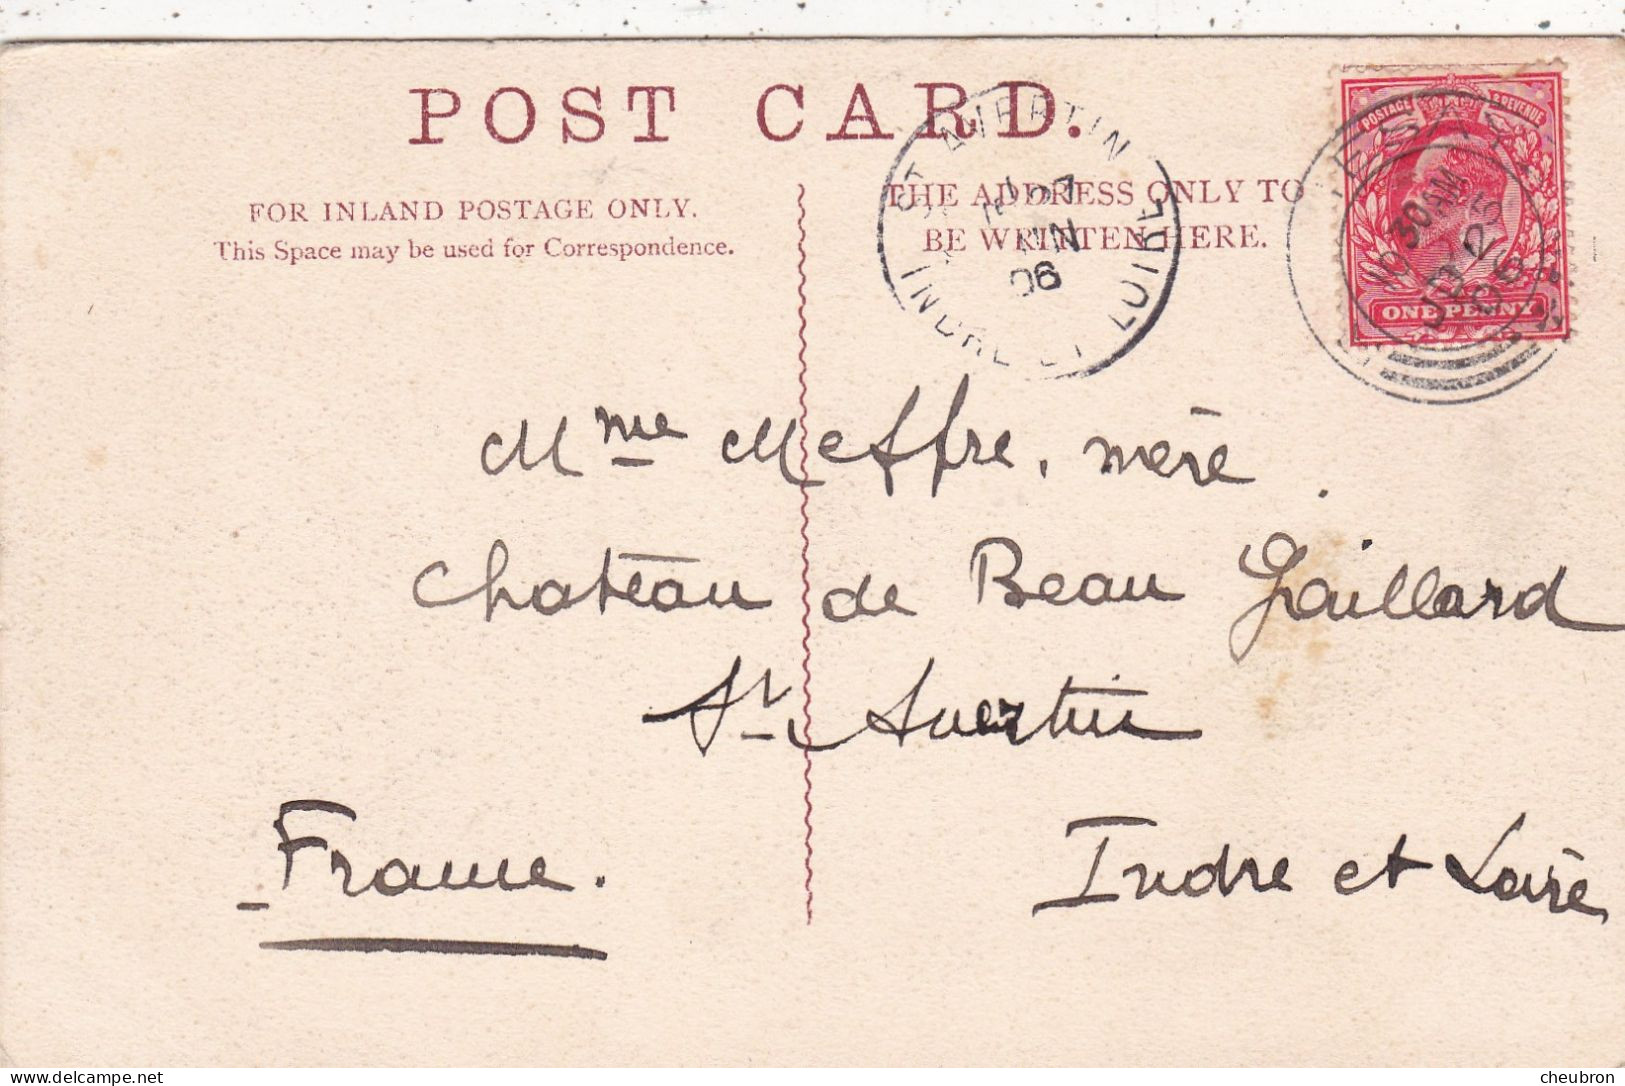 POST CARD.
FOR INLAND POSTAGE ONLY.
This Space may be used for Correspondence.
THE ADDRESS ONLY TO
BE WRITTEN HERE.
ST AVERTIN
27
06
INDRE ET LOIRE
POSTAGE & REVENUE
10 30 AM
06
ONE PENNY
Mme Meffre, mère
Chateau de Beau Gaillard
St Avertin
Indre et Loire
France.
delcampe.net
cheubron